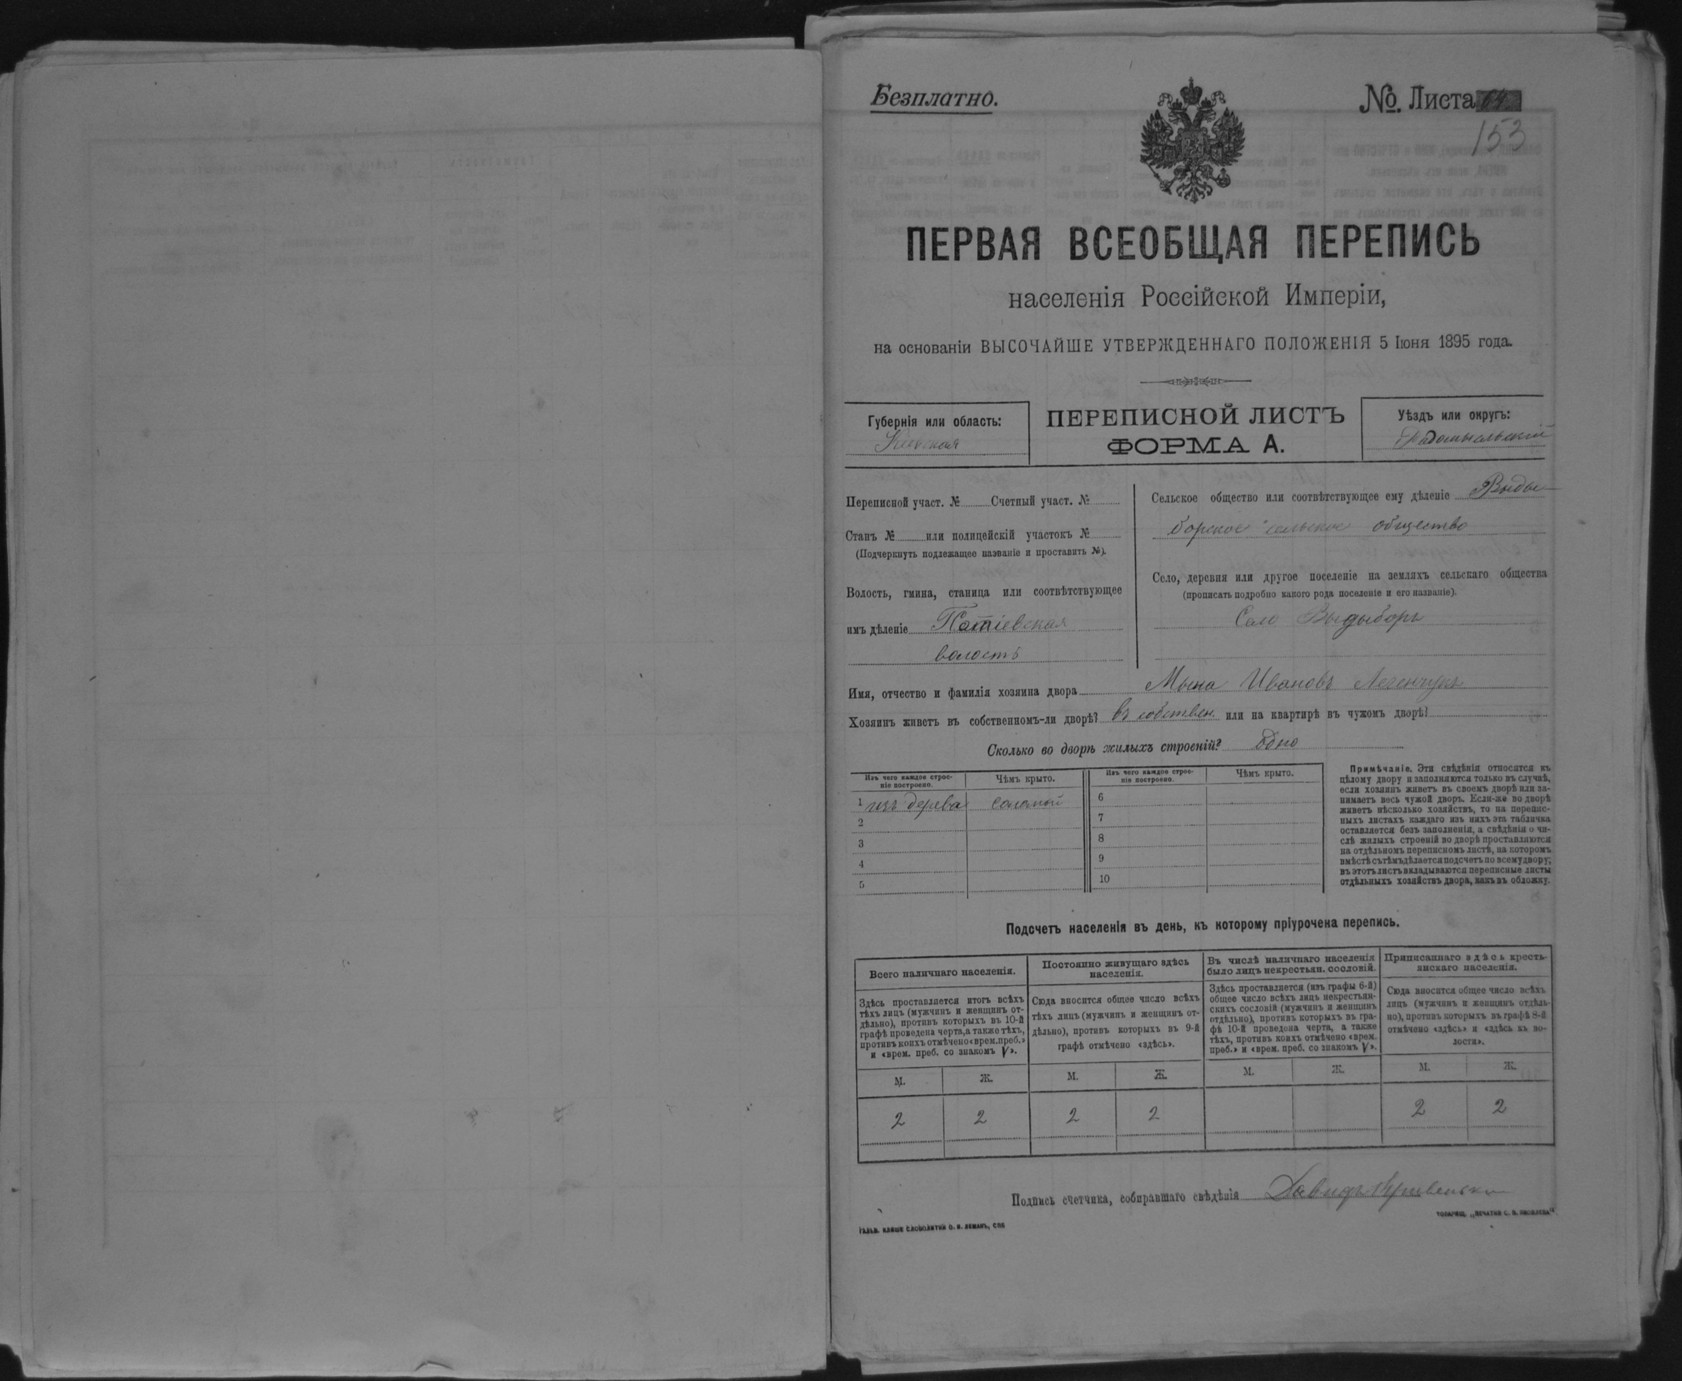 Безплатно.
№. Листа
153
ПЕРВАЯ ВСЕОБЩАЯ ПЕРЕПИСЬ
населенія Россійской Имперіи,
на основаніи ВЫСОЧАЙШЕ УТВЕРЖДЕННАГО ПОЛОЖЕНІЯ 5 Іюня 1895 года.
Губернія или область:
Кіевская
ПЕРЕПИСНОЙ ЛИСТЪ
ФОРМА А.
Уѣздъ или округъ:
Радомысльскій
Переписной участ. № Счетный участ. №
Станъ № или полицейскій участокъ №
(Подчеркнуть подлежащее названіе и проставить №).
Волость, гмина, станица или соотвѣтствующее
имъ дѣленіе Потіевская
волость
Сельское общество или соотвѣтствующее ему дѣленіе Выды-
борское сельское общество
Село, деревня или другое поселеніе на земляхъ сельскаго общества
(прописать подробно какого рода поселеніе и его названіе).
Село Выдыборъ
Имя, отчество и фамилія хозяина двора Ивановъ
Хозяинъ живетъ въ собственномъ-ли дворѣ? въ собствен. или на квартирѣ въ чужомъ дворѣ?
Сколько во дворѣ жилыхъ строеній? Одно
Изъ чего каждое строе-
ніе построено.
Чѣмъ крыто.
1 изъ дерева соломой
2
3
4
5
Изъ чего каждое строе-
ніе построено.
Чѣмъ крыто.
6
7
8
9
10
Примѣчаніе. Эти свѣдѣнія относятся къ
цѣлому двору и заполняются только въ случаѣ,
если хозяинъ живетъ въ своемъ дворѣ или за-
нимаетъ весь чужой дворъ. Если-же во дворѣ
живетъ нѣсколько хозяйствъ, то на перепис-
ныхъ листахъ каждаго изъ нихъ эта табличка
оставляется безъ заполненія, а свѣдѣнія о чи-
слѣ жилыхъ строеній во дворѣ проставляются
на отдѣльномъ переписномъ листѣ, на которомъ
вмѣстѣ съ тѣмъ дѣлается подсчетъ по всему двору;
въ этотъ листъ вкладываются переписные листы
отдѣльныхъ хозяйствъ двора, какъ въ обложку.
Подсчетъ населенія въ день, къ которому пріурочена перепись.
Всего наличнаго населенія.
Здѣсь проставляется итогъ всѣхъ
тѣхъ лицъ (мужчинъ и женщинъ от-
дѣльно), противъ которыхъ въ 10-й
графѣ проведена черта, а также тѣхъ,
противъ коихъ отмѣчено «врем. преб.»
и «врем. преб. со знакомъ V».
М. Ж.
2 2
Постоянно живущаго здѣсь
населенія.
Сюда вносится общее число всѣхъ
тѣхъ лицъ (мужчинъ и женщинъ от-
дѣльно), противъ которыхъ въ 9-й
графѣ отмѣчено «здѣсь».
М. Ж.
2 2
Въ числѣ наличнаго населенія
было лицъ некрестьян. сословій.
Здѣсь проставляется (изъ графы 6-й)
общее число всѣхъ лицъ некрестьян-
скихъ сословій (мужчинъ и женщинъ
отдѣльно), противъ которыхъ въ гра-
фѣ 10-й проведена черта, а также
тѣхъ, противъ коихъ отмѣчено «врем.
преб.» и «врем. преб. со знакомъ V».
М. Ж.
Приписаннаго здѣсь кресть-
янскаго населенія.
Сюда вносится общее число всѣхъ
лицъ (мужчинъ и женщинъ отдѣль-
но), противъ которыхъ въ графѣ 8-й
отмѣчено «здѣсь» и «здѣсь въ во-
лости».
М. Ж.
2 2
Подпись счетчика, собиравшаго свѣдѣнія Давидъ